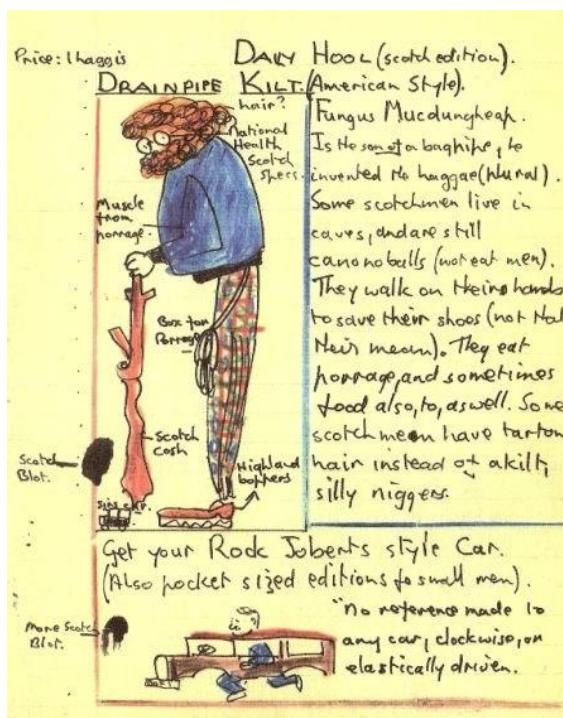 Price: 1 haggis
DAILY HOOL (scotch edition).
DRAINPIPE KILT. (American Style).
hair?
National
Health
Scotch
Specs.
Muscle
from
porrage.
Box for
Porrage
Scotch
Cosh
Highland
boppers
Scotch
Blot.
Fungus Mucdungheap.
Is the son of a bagpipe, he
invented the haggae (plural).
Some scotchmen live in
caves, and are still
canonoballs (not eat men).
They walk on their hands
to save their shoes (not that
their mean). They eat
porrage, and sometimes
food also, to, aswell. Some
scotchmen have tarton
hair instead of a kilt,
silly niggers.
Get your Rock Joberts style Car.
(Also pocket sized editions fo small men).
More Scotch
Blot.
"no reference made to
any car, clockwise, or
elastically driven.